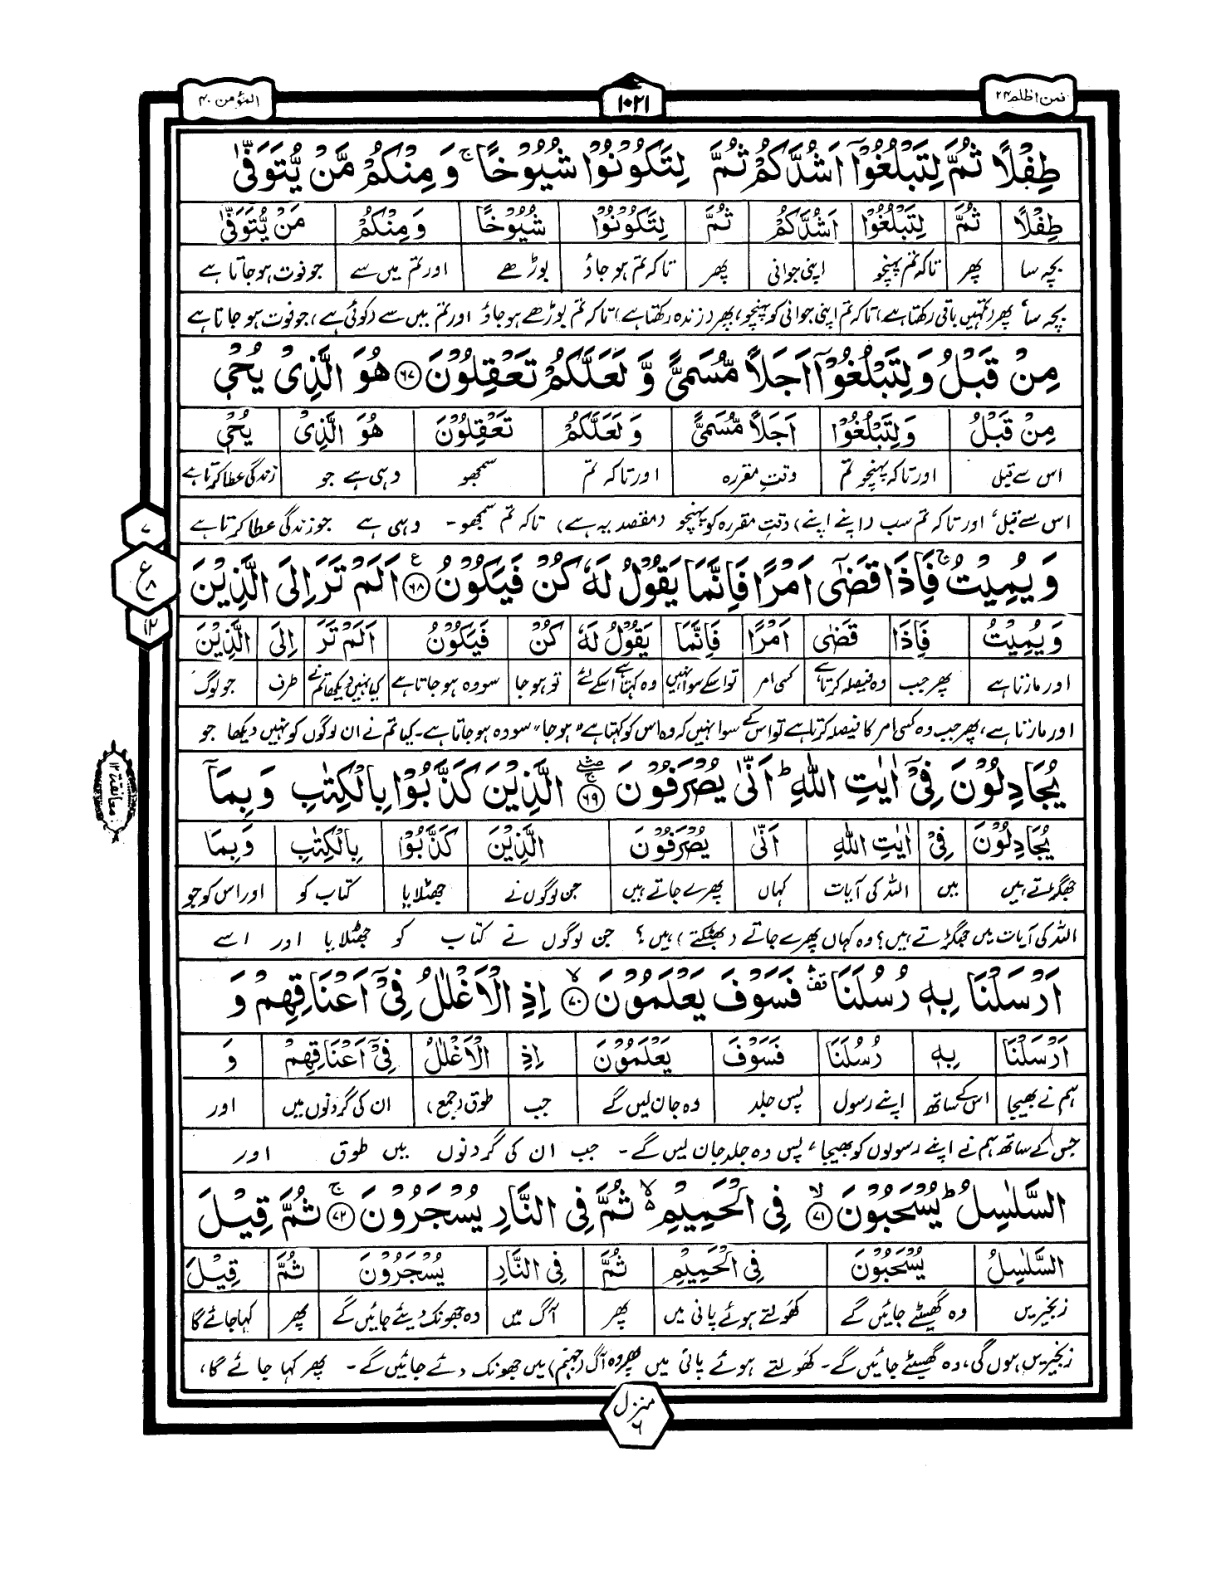 المؤمن ۴۰
۱۰۲۱
فمن اظلم ۲۴
طِفْلًا ثُمَّ لِتَبْلُغُوْۤا اَشُدَّكُمْ ثُمَّ لِتَكُوْنُوْا شُيُوْخًا ۚ وَ مِنْكُمْ مَّنْ يُّتَوَفّٰى
طِفْلًا ثُمَّ لِتَبْلُغُوْۤا اَشُدَّكُمْ ثُمَّ لِتَكُوْنُوْا شُيُوْخًا وَ مِنْكُمْ مَنْ يُّتَوَفّٰى
بچہ سا پھر تاکہ تم پہنچو اپنی جوانی پھر تاکہ تم ہو جاؤ بوڑھے اور تم میں سے جو فوت ہو جاتا ہے
بچہ سا، پھر (تمہیں باقی رکھتا ہے) تاکہ تم اپنی جوانی کو پہنچو، پھر (زندہ رکھتا ہے) تاکہ تم بوڑھے ہو جاؤ اور تم میں سے (کوئی ہے) جو فوت ہو جاتا ہے
مِنْ قَبْلُ وَ لِتَبْلُغُوْۤا اَجَلًا مُّسَمًّى وَّ لَعَلَّكُمْ تَعْقِلُوْنَ ﴿۶۷﴾ هُوَ الَّذِىْ يُحْىٖ
مِنْ قَبْلُ وَ لِتَبْلُغُوْۤا اَجَلًا مُّسَمًّى وَ لَعَلَّكُمْ تَعْقِلُوْنَ هُوَ الَّذِىْ يُحْىٖ
اس سے قبل اور تاکہ پہنچو تم وقتِ مقررہ اور تاکہ تم سمجھو وہی ہے جو زندگی عطا کرتا ہے
اس سے قبل، اور تاکہ تم سب (اپنے اپنے) وقتِ مقررہ کو پہنچو (مقصد یہ ہے) تاکہ تم سمجھو۔ وہی ہے جو زندگی عطا کرتا ہے
۷
ع
۸
۱۲
وَ يُمِيْتُ ۚ فَاِذَا قَضٰۤى اَمْرًا فَاِنَّمَا يَقُوْلُ لَهٗ كُنْ فَيَكُوْنُ ﴿۶۸﴾ ع اَلَمْ تَرَ اِلَى الَّذِيْنَ
وَ يُمِيْتُ فَاِذَا قَضٰۤى اَمْرًا فَاِنَّمَا يَقُوْلُ لَهٗ كُنْ فَيَكُوْنُ اَلَمْ تَرَ اِلَى الَّذِيْنَ
اور مارتا ہے پھر جب وہ فیصلہ کرتا ہے کسی امر تو اسکے سوا نہیں وہ کہتا ہے اسکے لئے تو ہو جا سو وہ ہو جاتا ہے کیا نہیں دیکھا تم نے طرف جو لوگ
اور مارتا ہے، پھر جب وہ کسی امر کا فیصلہ کرتا ہے تو اس کے سوا نہیں کہ وہ اس کو کہتا ہے "ہو جا" سو وہ ہو جاتا ہے۔ کیا تم نے ان لوگوں کو نہیں دیکھا جو
معانقة ۱۲
يُجَادِلُوْنَ فِىْۤ اٰيٰتِ اللّٰهِ ؕ اَنّٰى يُصْرَفُوْنَ ﴿۶۹﴾ الَّذِيْنَ كَذَّبُوْا بِالْكِتٰبِ وَ بِمَاۤ
يُجَادِلُوْنَ فِىْۤ اٰيٰتِ اللّٰهِ اَنّٰى يُصْرَفُوْنَ الَّذِيْنَ كَذَّبُوْا بِالْكِتٰبِ وَ بِمَا
جھگڑتے ہیں میں اللہ کی آیات کہاں پھرے جاتے ہیں جن لوگوں نے جھٹلایا کتاب کو اور اس کو جو
اللہ کی آیات میں جھگڑتے ہیں؟ وہ کہاں پھرے جاتے (بھٹکتے) ہیں؟ جن لوگوں نے کتاب کو جھٹلایا اور اسے
اَرْسَلْنَا بِهٖ رُسُلَنَا ۛ قف فَسَوْفَ يَعْلَمُوْنَ ﴿۷۰﴾ اِذِ الْاَغْلٰلُ فِىْۤ اَعْنَاقِهِمْ وَ
اَرْسَلْنَا بِهٖ رُسُلَنَا فَسَوْفَ يَعْلَمُوْنَ اِذِ الْاَغْلٰلُ فِىْۤ اَعْنَاقِهِمْ وَ
ہم نے بھیجا اس کے ساتھ اپنے رسول پس جلد وہ جان لیں گے جب طوق (جمع) ان کی گردنوں میں اور
جس کے ساتھ ہم نے اپنے رسولوں کو بھیجا، پس وہ جلد جان لیں گے۔ جب ان کی گردنوں میں طوق اور
السَّلٰسِلُ ؕ يُسْحَبُوْنَ ﴿۷۱﴾ فِى الْحَمِيْمِ ۙ ثُمَّ فِى النَّارِ يُسْجَرُوْنَ ﴿۷۲﴾ ثُمَّ قِيْلَ
السَّلٰسِلُ يُسْحَبُوْنَ فِى الْحَمِيْمِ ثُمَّ فِى النَّارِ يُسْجَرُوْنَ ثُمَّ قِيْلَ
زنجیریں وہ گھسیٹے جائیں گے کھولتے ہوئے پانی میں پھر آگ میں وہ جھونک دیئے جائیں گے پھر کہا جائے گا
زنجیریں ہوں گی، وہ گھسیٹے جائیں گے۔ کھولتے ہوئے پانی میں پھر وہ آگ (جہنم) میں جھونک دئے جائیں گے۔ پھر کہا جائے گا،
منزل ۶